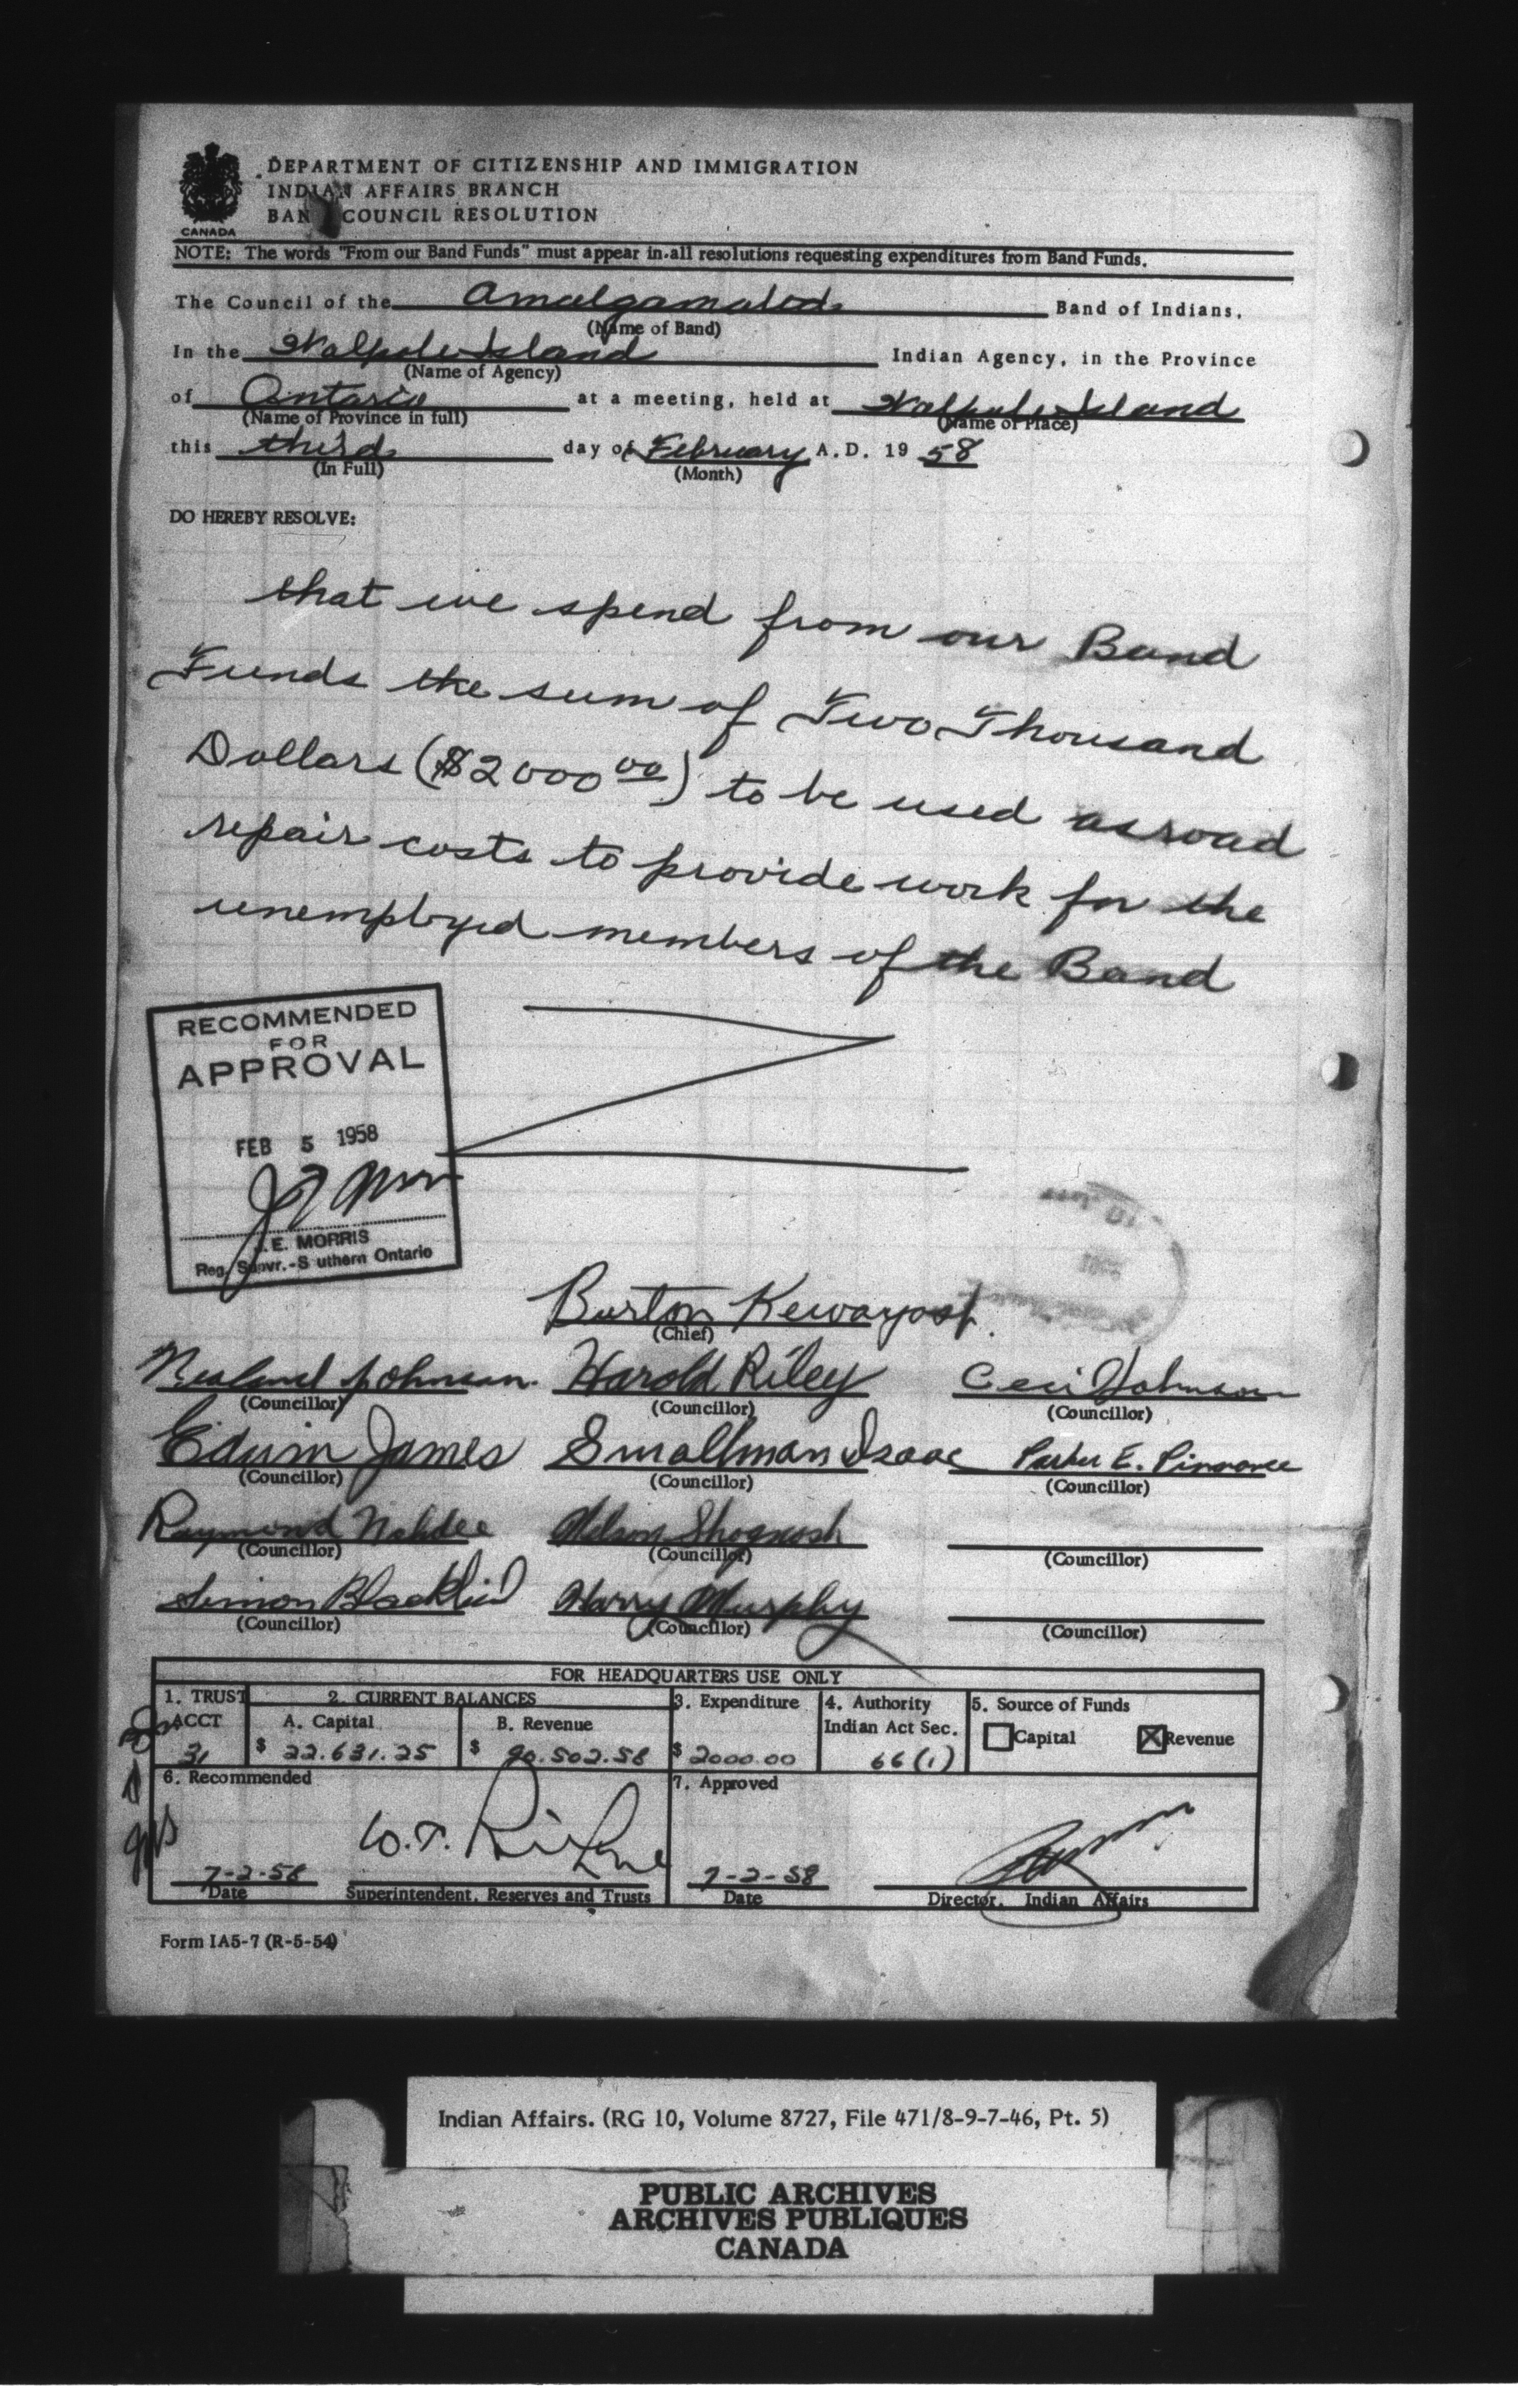 DEPARTMENT OF CITIZENSHIP AND IMMIGRATION
INDIAN AFFAIRS BRANCH
BAND COUNCIL RESOLUTION
CANADA
NOTE: The words "From our Band Funds" must appear in all resolutions requesting expenditures from Band Funds.
The Council of the Amalgamated Band of Indians,
(Name of Band)
In the Walpole Island Indian Agency, in the Province
(Name of Agency)
of Ontario at a meeting, held at Walpole Island
(Name of Province in full) (Name of Place)
this third day of February A.D. 19 58
(In Full) (Month)
DO HEREBY RESOLVE:
that we spend from our Band
Funds the sum of Two Thousand
Dollars ($2000 00) to be used as road
repair costs to provide work for the
unemployed members of the Band
RECOMMENDED
FOR
APPROVAL
FEB 5 1958
J.E. MORRIS
Reg. Supvr.-Southern Ontario
Burton Kewayosh
(Chief)
Johnson Harold Riley Cecil Johnson
(Councillor) (Councillor) (Councillor)
Edwin James Smallman Isaac E.
(Councillor) (Councillor) (Councillor)
Raymond Nahdee Nelson Shognosh
(Councillor) (Councillor) (Councillor)
Simon Blackbird Harry Murphy
(Councillor) (Councillor) (Councillor)
FOR HEADQUARTERS USE ONLY
1. TRUST ACCT 2. CURRENT BALANCES 3. Expenditure 4. Authority Indian Act Sec. 5. Source of Funds
A. Capital B. Revenue Capital Revenue
31 $ 22.631.25 $ 90.502.58 $ 2000.00 66(1)
6. Recommended 7. Approved
W.T.
7-2-58 7-2-58
Date Superintendent, Reserves and Trusts Date Director, Indian Affairs
Form IA5-7 (R-5-54)
Indian Affairs. (RG 10, Volume 8727, File 471/8-9-7-46, Pt. 5)
PUBLIC ARCHIVES
ARCHIVES PUBLIQUES
CANADA